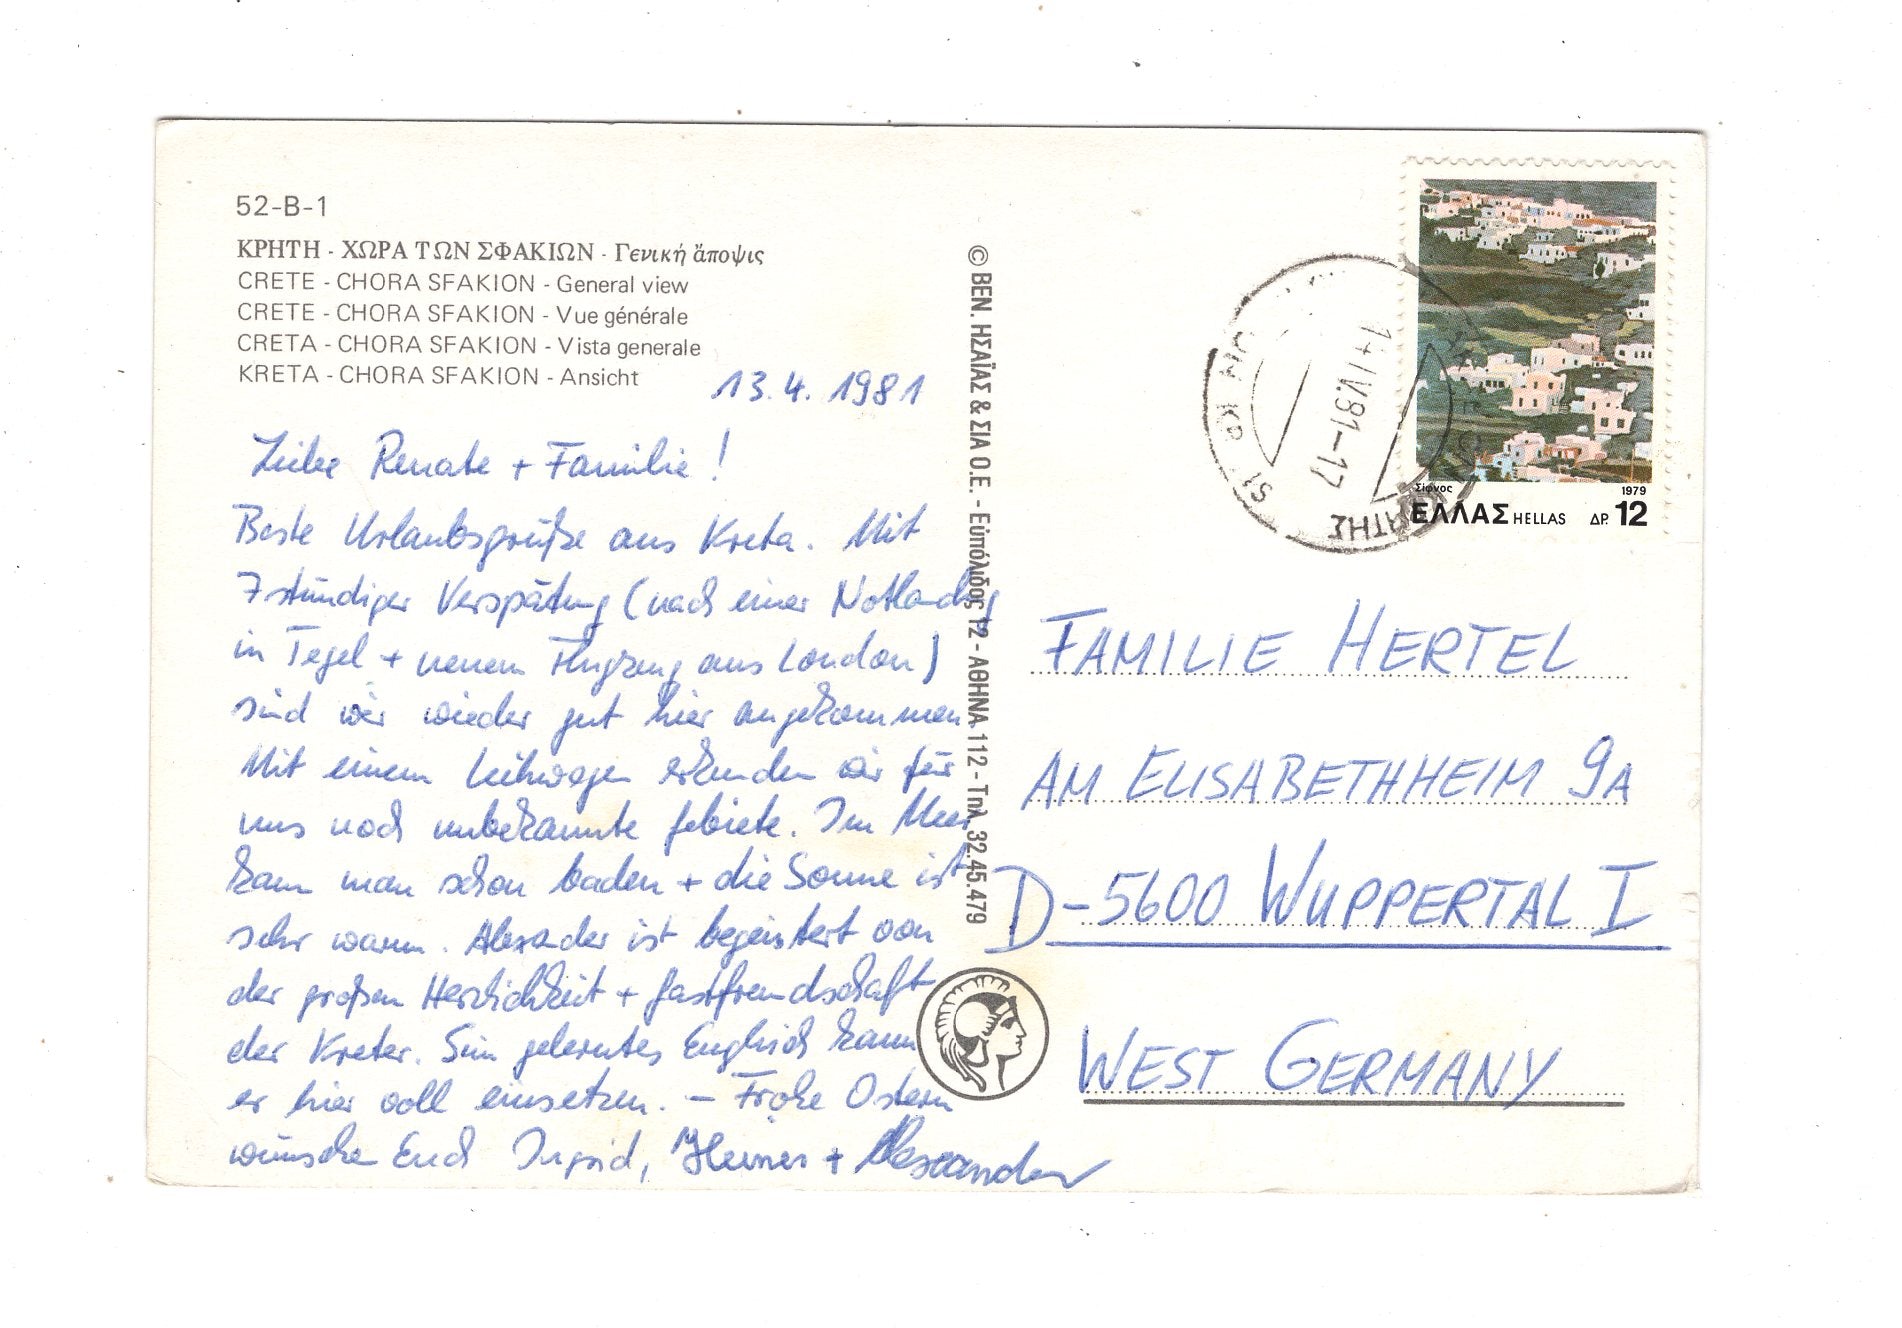 52-B-1
ΚΡΗΤΗ - ΧΩΡΑ ΤΩΝ ΣΦΑΚΙΩΝ - Γενική ἄποψις
CRETE - CHORA SFAKION - General view
CRETE - CHORA SFAKION - Vue générale
CRETA - CHORA SFAKION - Vista generale
KRETA - CHORA SFAKION - Ansicht
13.4.1981
Liebe Renate + Familie!
Beste Urlaubsgrüße aus Kreta. Mit
7stündiger Verspätung (nach einer Notlandung
in Tegel + neuem Flugzeug aus London)
sind wir wieder gut hier angekommen.
Mit einem Leihwagen erkunden wir für
uns noch unbekannte Gebiete. Im Meer
kann man schon baden + die Sonne ist
sehr warm. Alexander ist begeistert von
der großen Herzlichkeit + Gastfreundschaft
der Kreter. Sein gelerntes Englisch kann
er hier voll einsetzen. – Frohe Ostern
wünschen Euch Ingrid, Heiner + Alexander
© ΒΕΝ. ΗΣΑΪΑΣ & ΣΙΑ Ο.Ε. - Εὐπόλιδος 12 - ΑΘΗΝΑ 112 - Τηλ. 32.45.479
14 IV 81-17
Σίφνος 1979
ΕΛΛΑΣ HELLAS ΔΡ. 12
FAMILIE HERTEL
AM ELISABETHHEIM 9A
D-5600 WUPPERTAL I
WEST GERMANY